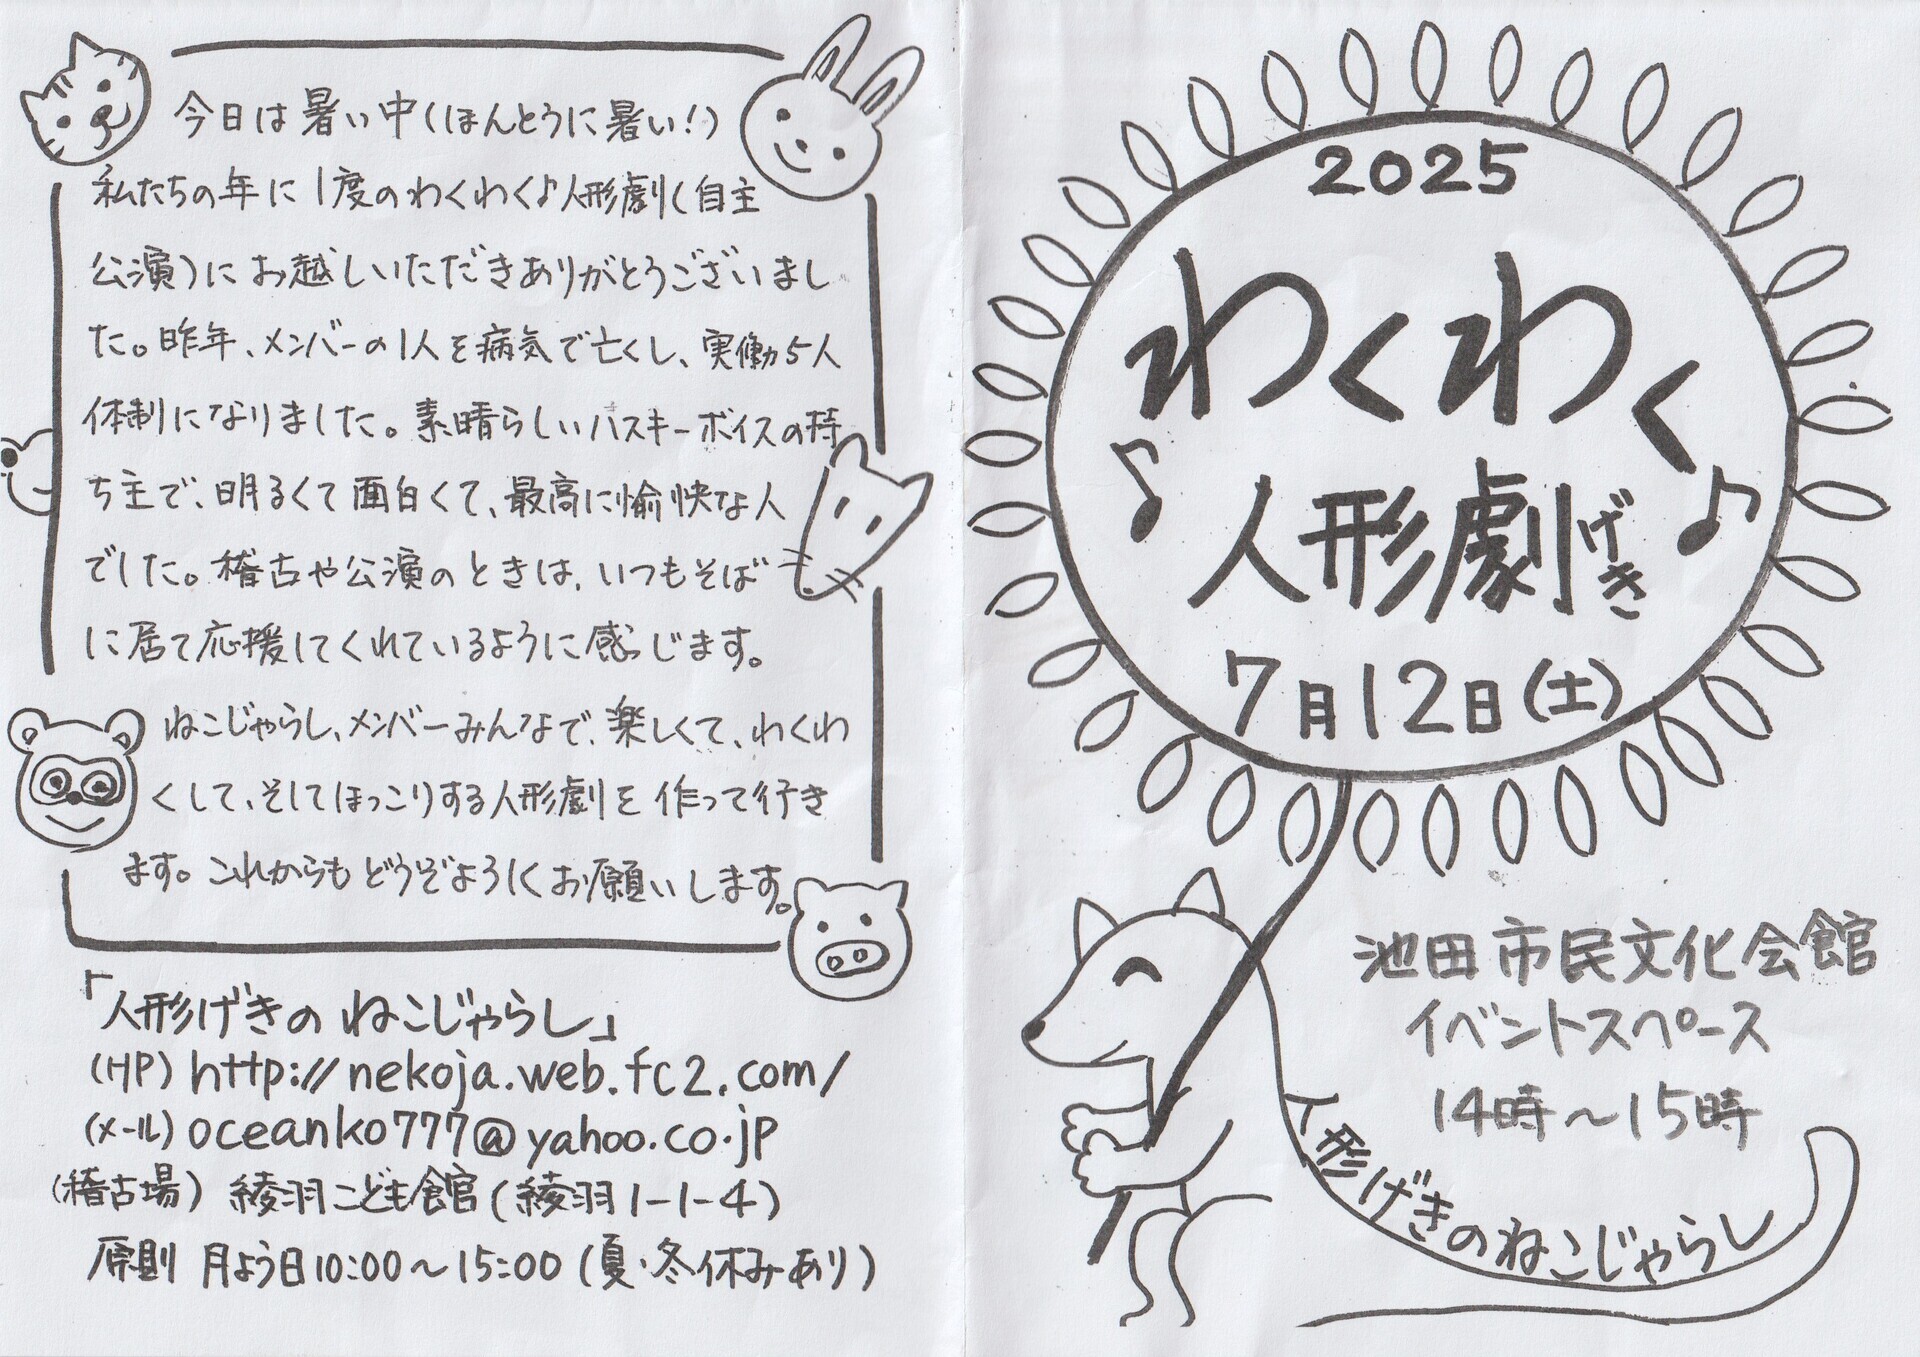 今日は暑い中(ほんとうに暑い!)
私たちの年に1度のわくわく♪人形劇(自主
公演)にお越しいただきありがとうございまし
た。昨年、メンバーの1人を病気で亡くし、実働5人
体制になりました。素晴らしいハスキーボイスの持
ち主で、明るくて面白くて、最高に愉快な人
でした。稽古や公演のときは、いつもそば
に居て応援してくれているように感じます。
ねこじゃらし、メンバーみんなで、楽しくて、わくわ
くして、そしてほっこりする人形劇を作って行き
ます。これからもどうぞよろしくお願いします。
「人形げきの ねこじゃらし」
(HP) http://nekoja.web.fc2.com/
(メール) oceanko777@yahoo.co.jp
(稽古場) 綾羽こども会館(綾羽1-1-4)
原則 月よう日10:00~15:00 (夏・冬休みあり)
2025
わくわく
♪人形劇げき♪
7月12日(土)
池田市民文化会館
イベントスペース
14時~15時
人形げきのねこじゃらし